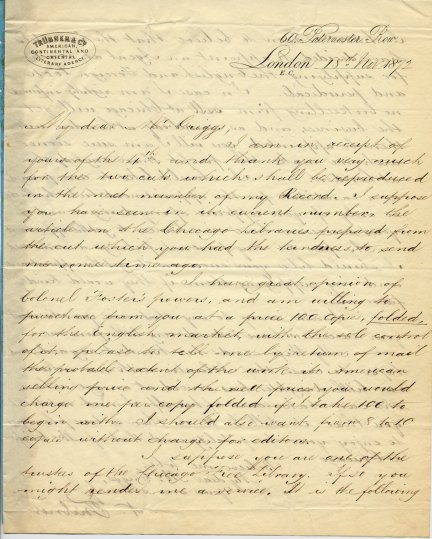 TRÜBNER & Co.
AMERICAN,
CONTINENTAL AND
ORIENTAL
LITERARY AGENCY
60, Paternoster Row,
London 18th Nov. 1872
E.C.
My dear Mr Griggs,
I am in receipt of
yours of the 4th and thank you very much
for the two cuts which shall be reproduced
in the next number of my Record. I suppose
you have seen in the current number the
article on the Chicago Libraries prepared from
the cut which you had the kindness to send
me some time ago.
I have great opinion of
Colonel Foster's powers, and am willing to
purchase from you at a price 100 copies, folded,
for the English market, with the sole control
of it; please to tell me by return of mail
the probable extent of the work, its American
selling price and the nett price you would
charge me per copy folded if I take 100 to
begin with. I should also want from 8 to 10
copies without charge for editors.
I suppose you are one of the
trustees of the Chicago Free Library. If so you
might render me a service. It is the following